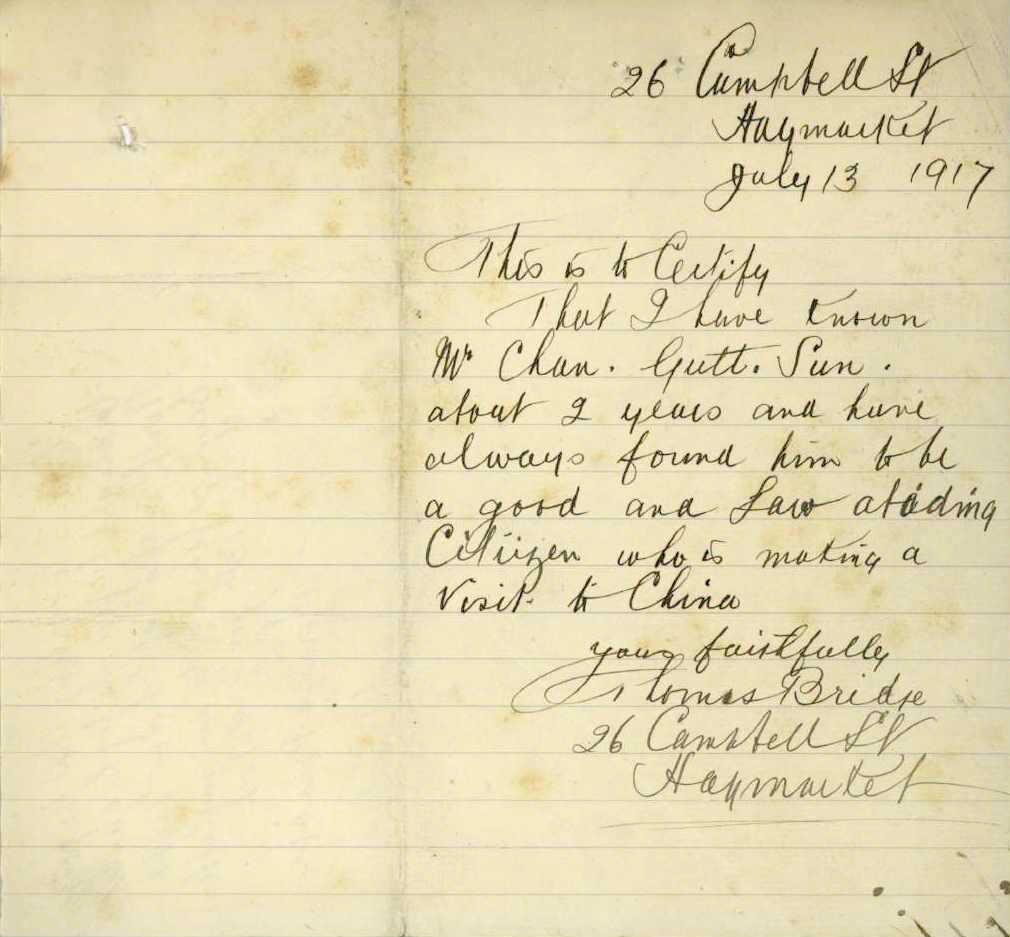 26 Campbell St
Haymarket
July 13 1917
This is to Certify
That I have known
Mr Chan. Gutt. Sun.
about 2 years and have
always found him to be
a good and Law abiding
Citizen who is making a
Visit to China
yours faithfully
Thomas Bridge
26 Campbell St
Haymarket